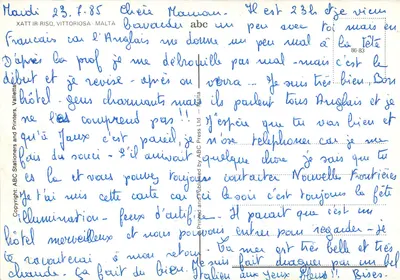 Mardi 23.7.85 Chère Maman: Il est 23h et je viens
XATT IR-RISQ, VITTORIOSA - MALTA
abc
bavarder un peu avec toi mais en
Français car l'Anglais me donne un peu mal à la tête
86-83
D'après la prof je me débrouille pas mal - mais c'est le
début et je révise - après on verra... Je suis très bien, Bon
hôtel - gens charmants mais ils parlent tous Anglais et je
ne les comprend pas!! J'espère que tu vas bien et
qu'à Jaux c'est pareil, je n'ose téléphoner car je me
fais du souci - S'il arrivait quelque chose je sais que tu
es là et vous pouvez toujours contacter Nouvelles Frontières
Je t'ai mis cette carte car le soir c'est toujours la fête
illumination - feux d'artifice - Il parait que c'est un
hôtel merveilleux et nous pouvons entrer pour regarder - je
te raconterai à mon retour - La mer est très belle et très
chaude - Ça fait du bien. Je me suis fait draguer par un bel
Italien aux yeux bleus!! Bises.
Copyright: ABC Stationers and Printers, Valletta
Printed and published by ABC Press Ltd.